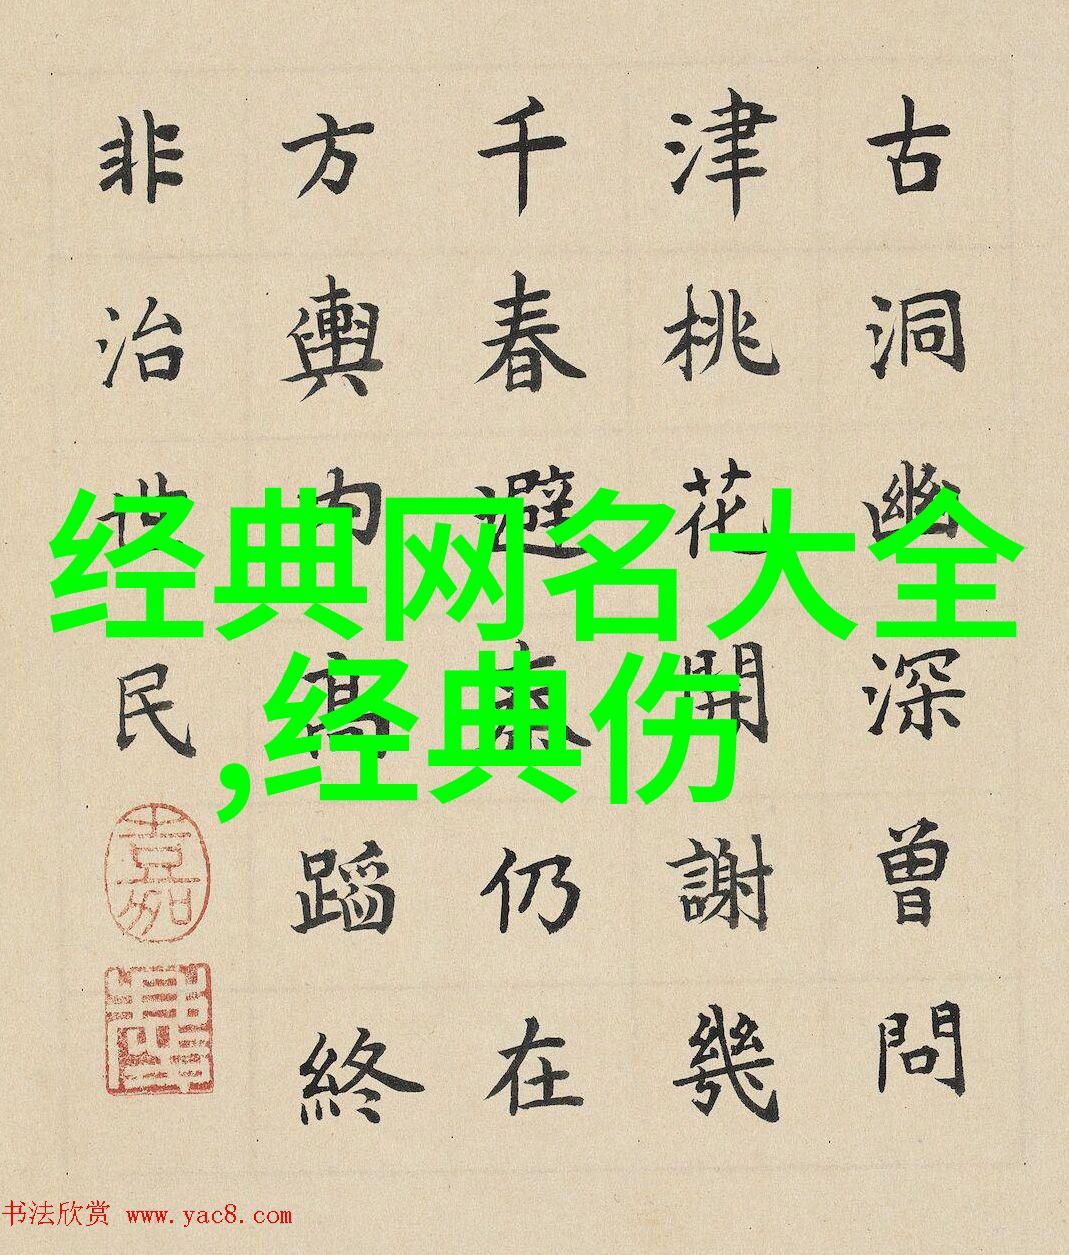 古洞幽深曾問
津桃花開謝幾
千春避秦仍在
方輿內高蹈終
非治世民
经典网名大全
,经典伤
书法欣赏 www.yac8.com